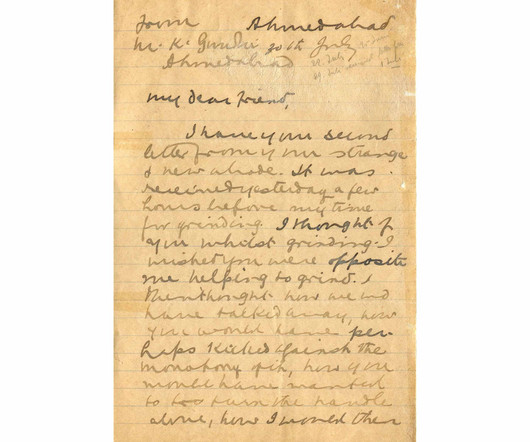 From Ahmedabad
M. K. Gandhi 30th July
Ahmedabad
My dear friend,
I have your second
letter from your strange
& new abode. It was
received yesterday a few
hours before my time
for grinding. I thought of
you whilst grinding. I
wished you were opposite
me helping to grind. I
then thought how we wd
have talked away, how
you would have per-
haps kicked against the
monotony of it, how you
would have wanted
to turn the handle
alone, how I would then